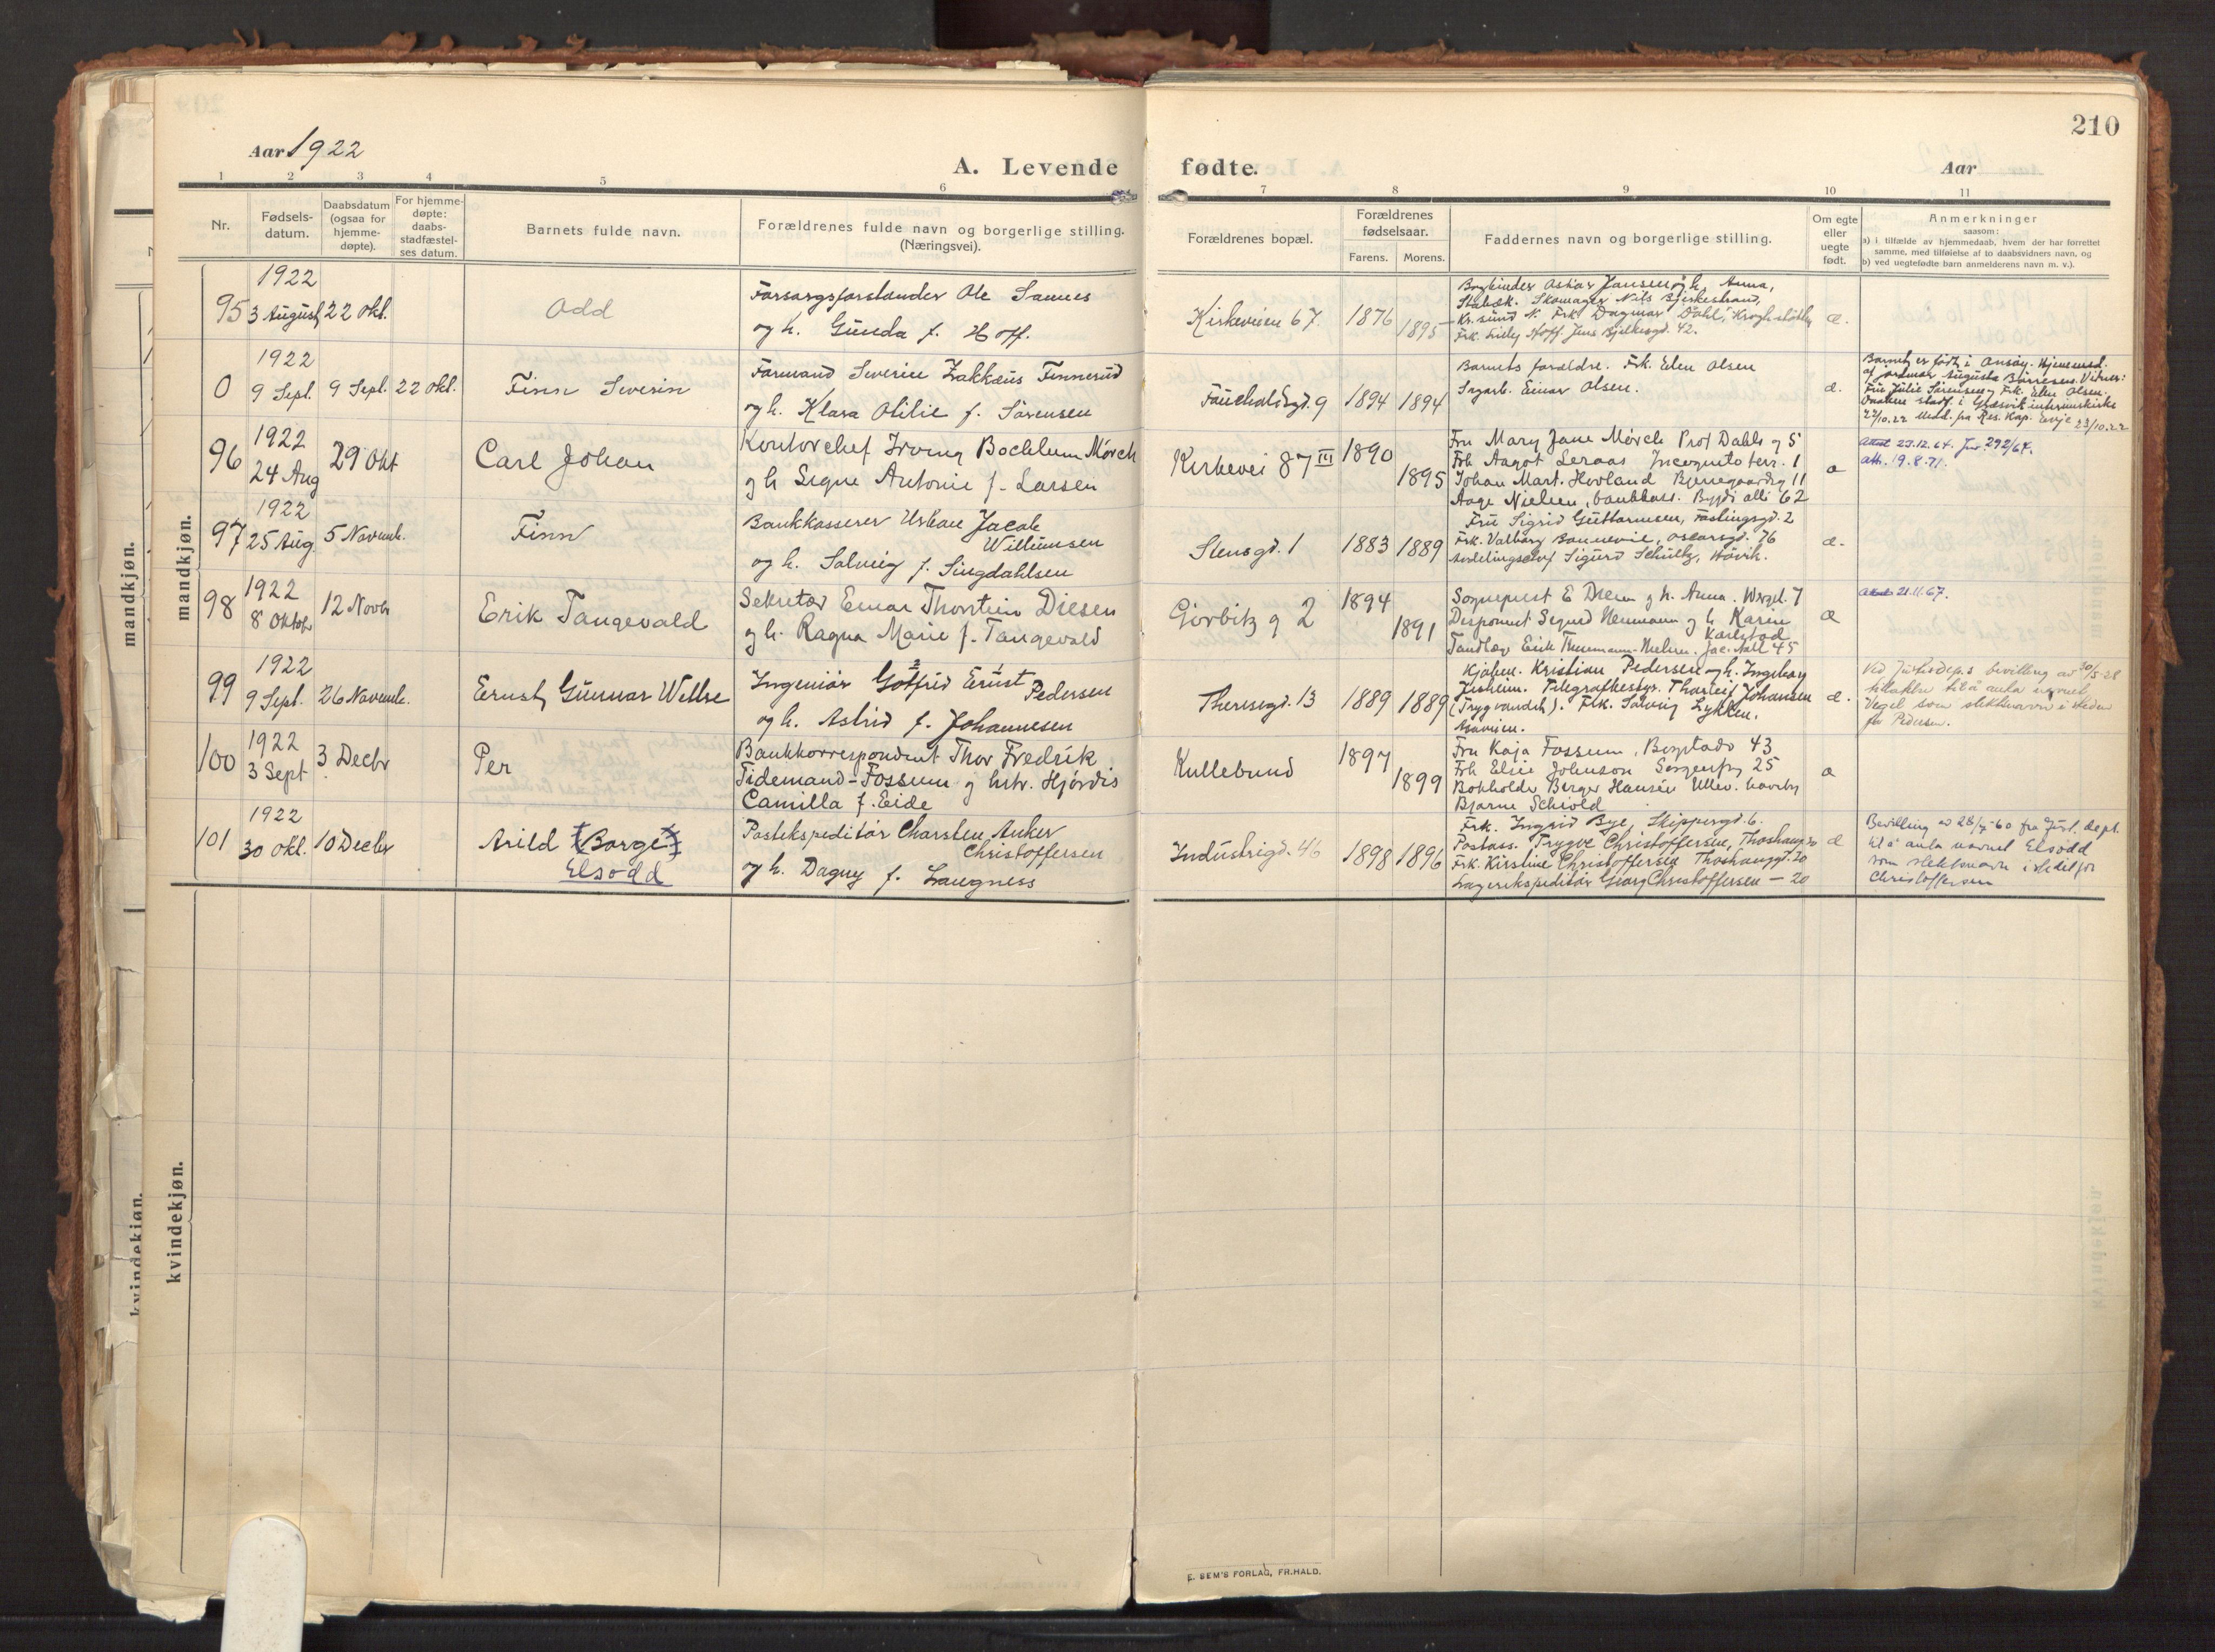 210
Aar 1922
A. Levende fødte.
Aar
1 2 3 4 5 6 7 8 9 10 11
Nr.
Fødsels-
datum.
Daabsdatum
(ogsaa for
hjemme-
døpte).
For hjemme-
døpte:
daabs-
stadfæstel-
ses datum.
Barnets fulde navn.
Forældrenes fulde navn og borgerlige stilling.
(Næringsvei).
Forældrenes bopæl.
Forældrenes
fødselsaar.
Farens. Morens.
Faddernes navn og borgerlige stilling.
Om egte
eller
uegte
født.
Anmerkninger
saasom:
a) i tilfælde av hjemmedaab, hvem der har forrettet
samme, med tilføielse af to daabsvidners navn, og
b) ved uegtefødte barn anmelderens navn m. v.).
mandkjøn.
mandkjøn.
1922
95 3 August 22 Okt.
Odd
Forsorgsforstander Ole Sannes
og h. Gunda f. Hoff.
Kirkeveien 67. 1876 1895
Bogbinder Oskar Jansen og h. Anna,
Stabæk. Skomager Nils Bjerkestrand,
Kr.sund N. Frk Dagmar Dahl,
Frk. Lilly Hoff Jens Bjelkesgd. 42.
æ.
1922
0 9 Sept. 9 Sept. 22 Okt.
Finn Severin
Formand Severin Zakkæus Finnerud
og h. Klara Otilie f. Sørensen
Fauchaldsgd. 9 1894 1894
Barnets forældre. Frk. Elen Olsen
Sagarb. Einar Olsen.
æ.
Barnet er født i Onsøy. Hjemmed.
af jordmor Augusta Børresen. Vidner:
Fru Julie Sørensen og Frk. Elen Olsen,
Daaben stadf. i Græsvik interimskirke
22/10.22 Medd. fra Res. Kap. Evje 23/10.22
1922
96 24 Aug 29 Okt
Carl Johan
Kontorchef Irving Bochlum Mørch
og h Signe Antonie f. Larsen
Kirkevei 87 III 1890 1895
Fru Mary Jane Mørch Prof Dahls g 5
Frk Aagot Leraas Incognito terr. 1
Johan Mart. Hovland Bjerregaardsg 11
Aage Nielsen, bankkass. Bygdø alle 62
æ
Attest 23.12.64. Jnr. 292/64.
Att. 19.8.71.
1922
97 25 Aug. 5 Novemb.
Finn
Bankkasserer Urban Jacob
Willumsen
og h. Solveig f. Singdahlsen
Stensgd. 1 1883 1889
Fru Sigrid Guttormsen, Fastingsgd. 2
Frk. Valborg Bonnevie, Oscarsgd. 76
Avdelingschef Sigurd Schultz, Høvik.
æ.
1922
98 8 Oktob 12 Novb
Erik Tangevald
Sekretær Einar Thorstein Diesen
og h. Ragna Marie f. Tangevald
Gørbitz g 2 1894 1891
Sogneprest E Diesen og h. Anna. Wergel. 7
Disponent Sigurd Neumann og h Karin
Karlstad
Tandlæge Erik Neumann-Nielsen. Jac. Aall 45
æ
Attest 21.11.67.
1922
99 9 Sept. 26 Novemb.
Ernst Gunnar Wellse
Ingeniør Gotfrid Ernst Pedersen
2 1
og h. Astrid f. Johannesen
Theresegd. 13 1889 1889
Kjøbm. Kristian Pedersen og h. Ingeborg
Jesheim. Telegrafbestyr. Thorleif Johansen
(Trygvandet). Frk. Solveig Lykken.
æ.
Ved Justisdep.s bevilling av 30/5-28
tillatelse til å anta navnet
Vegel som slektsnavn i steden
for Pedersen.
1922
100 3 Sept 3 Decbr
Per
Bankkorrespondent Thor Fredrik
Tidemand-Fossum og hstr. Hjørdis
Camilla f. Eide
Kullebund 1897 1899
Fru Kaja Fossum, Bogstadv 43
Frk Elsie Johnson Sorgenfrig 25
Bokholder Birger Hansen Ullev. haveby
Bjarne Schiold
æ
1922
101 30 Okt. 10 Decbr
Arild [Borge]
Elsodd
Postekspeditør Charsten Anker
Christoffersen
og h. Dagny f. Laugness
Industrigd. 46 1898 1896
Frk. Ingrid Bye, Skippergd. 6.
Postass. Trygve Christoffersen, Thoshauggd. 20
Frk. Kirstine Christoffersen Thoshauggd. 20
Lagerekspeditør Georg Christoffersen — 20
æ
Bevilling av 28/7-60 fra Just. dept.
til å anta navnet Elsodd
som slektsnavn istedet for
Christoffersen
kvindekjøn.
kvindekjøn.
E. SEM'S FORLAG, FR.HALD.